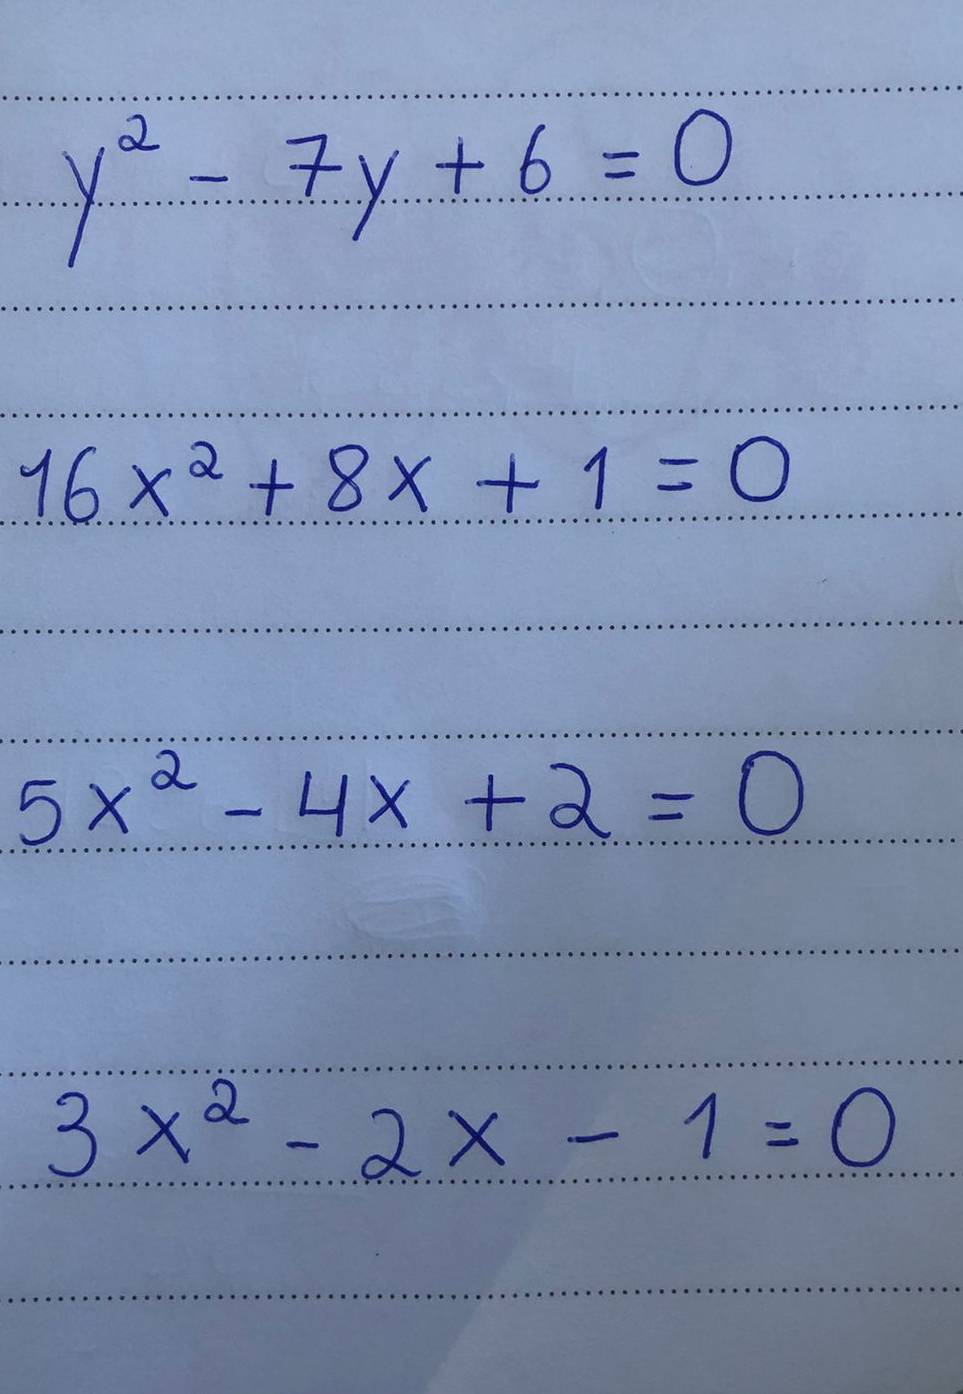 y² - 7y + 6 = 0
16x² + 8x + 1 = 0
5x² - 4x + 2 = 0
3x² - 2x - 1 = 0